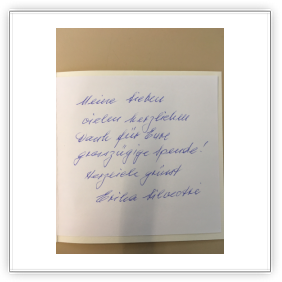 Meine Lieben
vielen herzlichen
Dank für Eure
grosszügige Spende!
Herzliche grüsst
Erika Silvestri